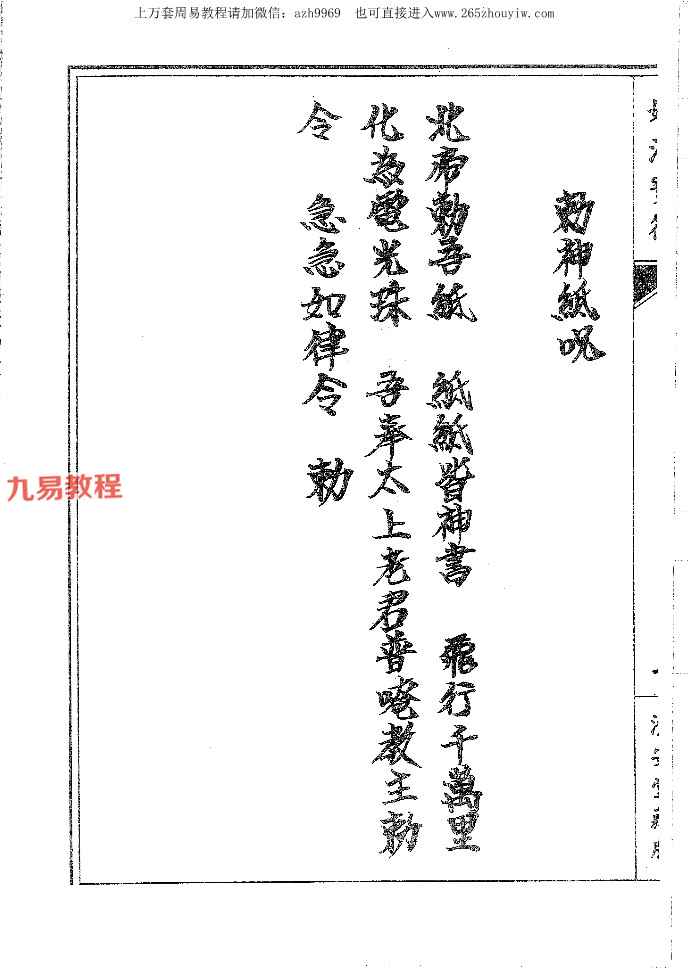 上万套周易教程请加微信：azh9969 也可直接进入www.265zhouyiw.com
勅神紙咒
北帝勅吾紙 紙紙皆神書 飛行千萬里
化為電光珠 吾奉太上老君普唵教主勅
令 急急如律令 勅
九易教程